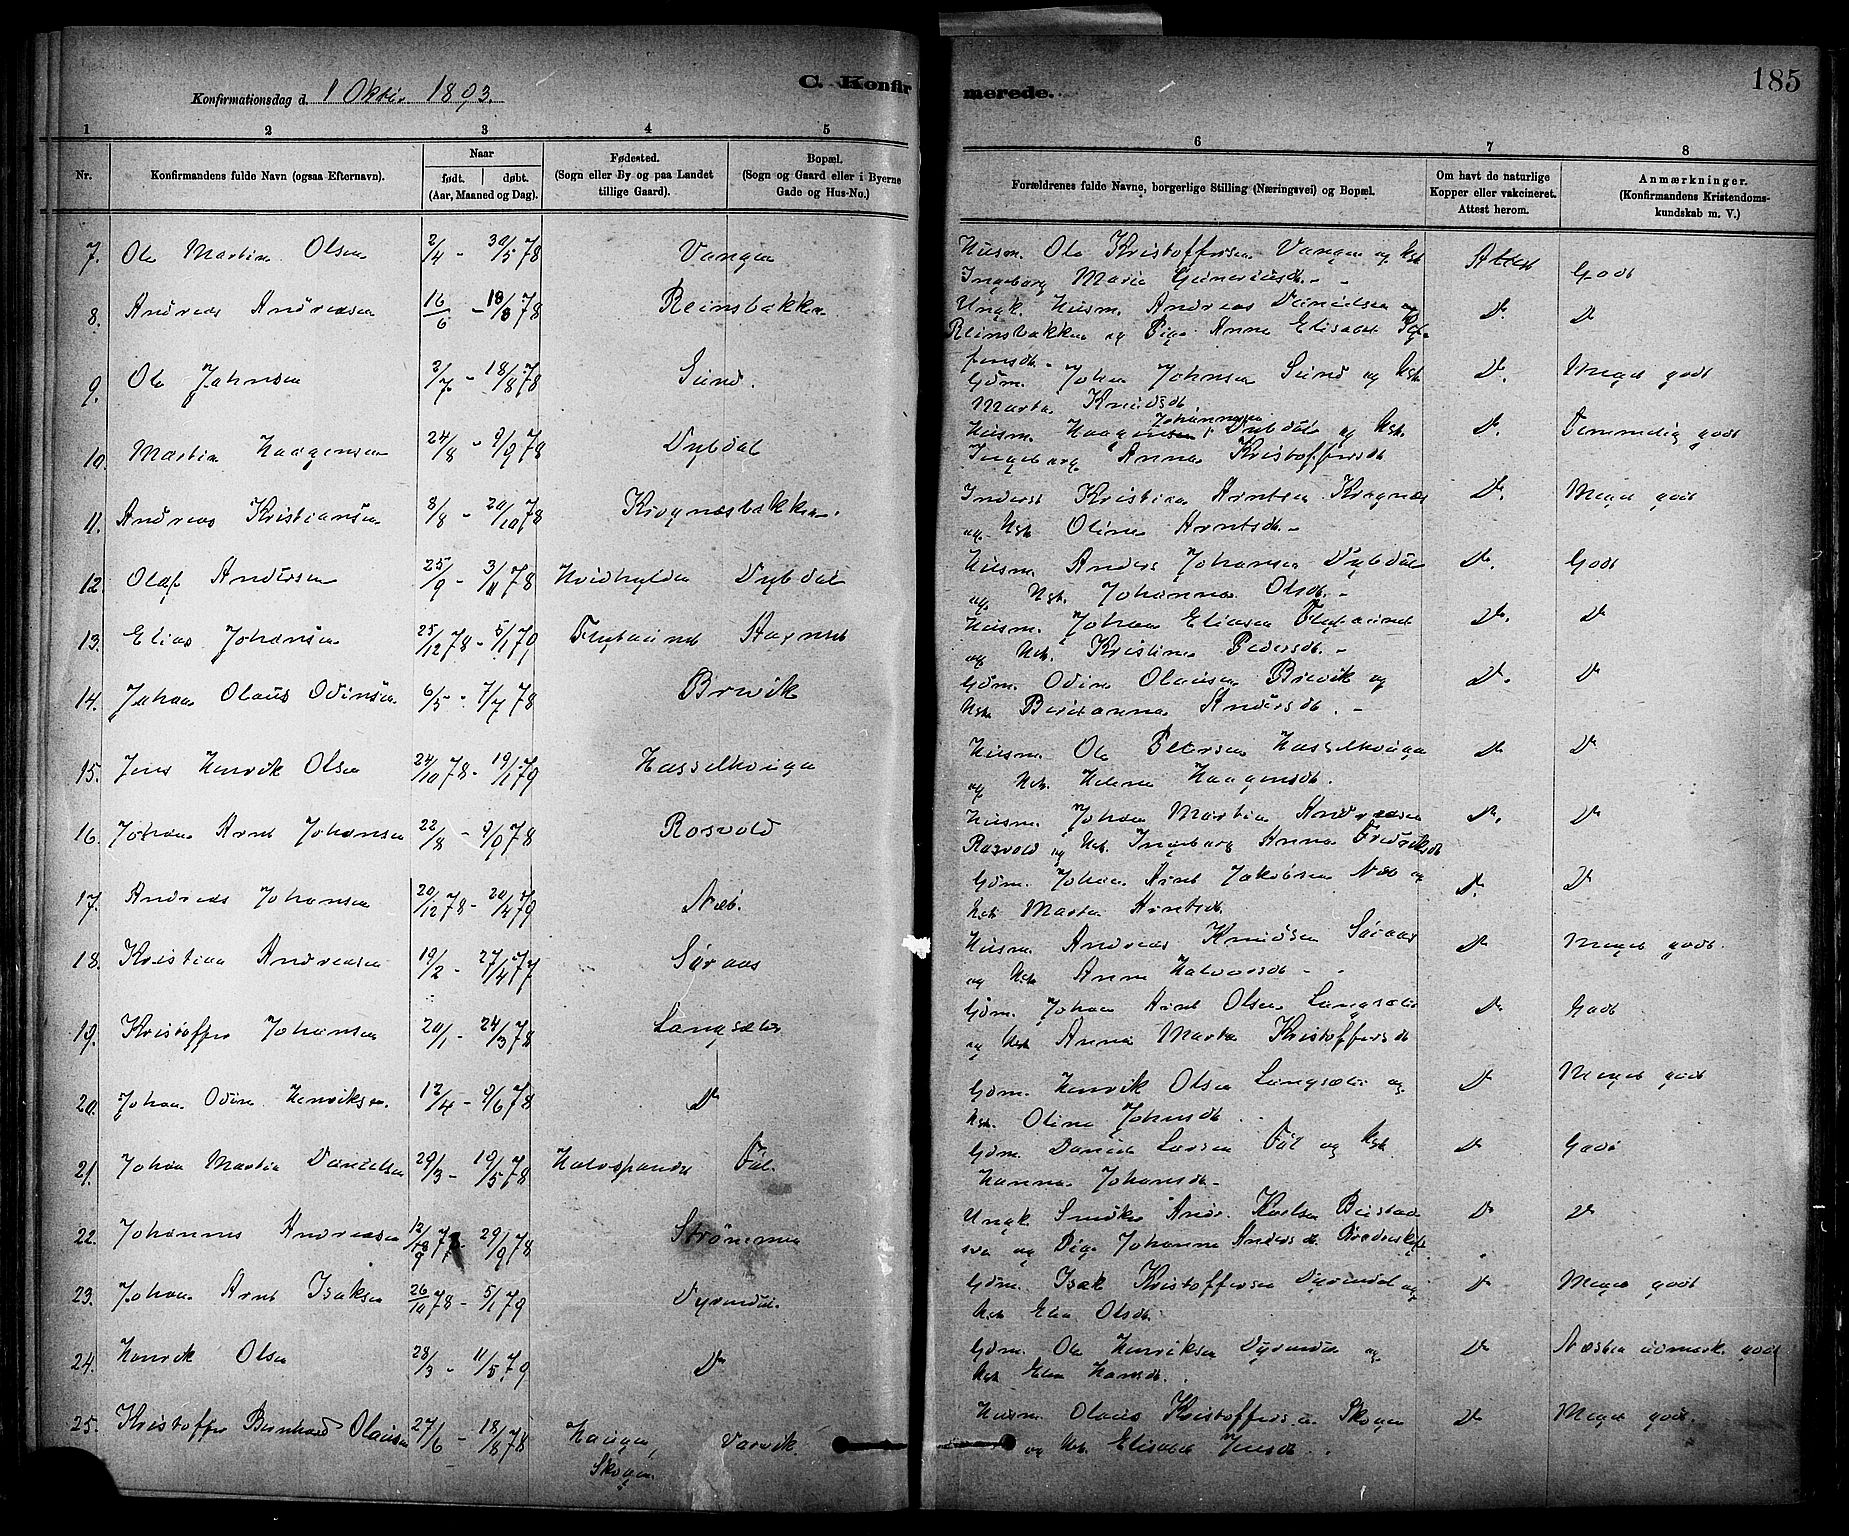 Konfirmationsdag d. 1 Oktbr. 1893.
C. Konfirmerede.
185
1 2 3 4 5 6 7 8
Nr.
Konfirmandens fulde Navn (ogsaa Efternavn).
Naar
født. døbt.
(Aar, Maaned og Dag).
Fødested.
(Sogn eller By og paa Landet
tillige Gaard).
Bopæl.
(Sogn og Gaard eller i Byerne
Gade og Hus-No.)
Forældrenes fulde Navne, borgerlige Stilling (Næringsvei) og Bopæl.
Om havt de naturlige
Kopper eller vakcineret.
Attest herom.
Anmærkninger.
(Konfirmandens Kristendoms-
kundskab m. V.)
7. Ole Martin Olsen 2/4 - 30/5 78 Vangen Husm. Ole Kristoffersen Vangen og Hst. Attest Godt
Ingeborg Marie
8. Andreas Andreasen 16/6 - 18/8 78 Reinsbakken Ungk. Husm. Andreas Danielsen og Do Do
Reinsbakken og Pige Anne Elisabet
9. Ole Johnsen 2/7 - 18/8 78 Sund. Gdm. Johan Johnsen Sund og Hst. Do. Meget godt
Marta Knudsdt.
10. Martin Haagensen 24/8 - 9/9 78 Dybdal Husm. Haagen Johannesen Dybdal og Hst. Do. Temmelig godt
Ingeborg Anna Kristoffersdt
11. Andreas Kristiansen 8/8 - 20/10 78 Kragnæsbakken. Inderst Kristian Arntsen Kragnæs Do. Meget godt
og Hst Oline Arntsdt. -
12. Olaf Andersen 25/9 - 3/11 78 Hvidhylden Dybdal Husm. Anders Johansen Dybdal Do. Godt
og Hst. Johanna Olsdt. -
13. Elias Johansen 25/12 78 - 5/1 79 Husm. Johan Eliasen Do. Do
og Hst. Kristine Pedersdt. -
14. Johan Olaus Odinsen 6/5 - 7/7 78 Brevik Gdm. Odin Olausen Brevik og Do. Do
Hst. Beritanna Andersdt. -
15. Jens Henrik Olsen 24/10 78 - 19/1 79 Hasselhouga Husm. Ole Petersen Hasselhouga Do Do
og Hst. Helene Haagensdt.
16. Johan Arnt Johansen 22/8 - 9/9 78 Rosvold Husm. Johan Martin Andreasen Do. Do
Rosvold og Hst. Ingeborg Anna Fredriksdt
17. Andreas Johansen 20/12 78 - 20/4 79 Næb. Gdm. Johan Arnt Jakobsen Næb og Do. Do
Hst Marta Arntsdt.
18. Kristian Andreasen 19/2 - 27/4 77 Søraas Husm Andreas Knudsen Søraas Do Meget godt.
og Hst Anne Halvorsdt -
19. Kristoffer Johansen 20/1 - 24/3 78 Langsæter Gdm. Johan Arnt Olsen Langsæter Do Godt
og Hst Anne Marta Kristoffersdt
20. Johan Odin Henriksen. 12/4 - 9/6 78 Do Gdm. Henrik Olsen Langsæter og Do Meget godt
Hst. Oline Johnsdt.
21. Johan Martin Danielsen 29/3 - 19/5 78 Føl. Gdm. Daniel Larsen Føl og Hst Do Godt
Hanna Johansdt. -
22. Johannes Andreasen 29/9 78 Strømmen Ungk Do Do
og Pige Johanna Andersdt.
23. Johan Arnt Isaksen 26/10 78 - 5/1 79 Dyrendal. Gdm. Isak Kristoffersen Dyrendal og Do Meget godt
Hst Elen Olsdt.
24. Henrik Olsen 28/3 - 11/5 79 Do Gdm. Ole Henriksen Dyrendal og Do Næsten udmerk. godt
Hst Elen Hansdt.
25. Kristoffer Bernhard Olausen 27/6 - 18/8 78 Haugen, Varvik. Husm Olaus Kristoffersen Skogen Do Meget godt.
Skogen og Hst. Elisabet Jensdt. .